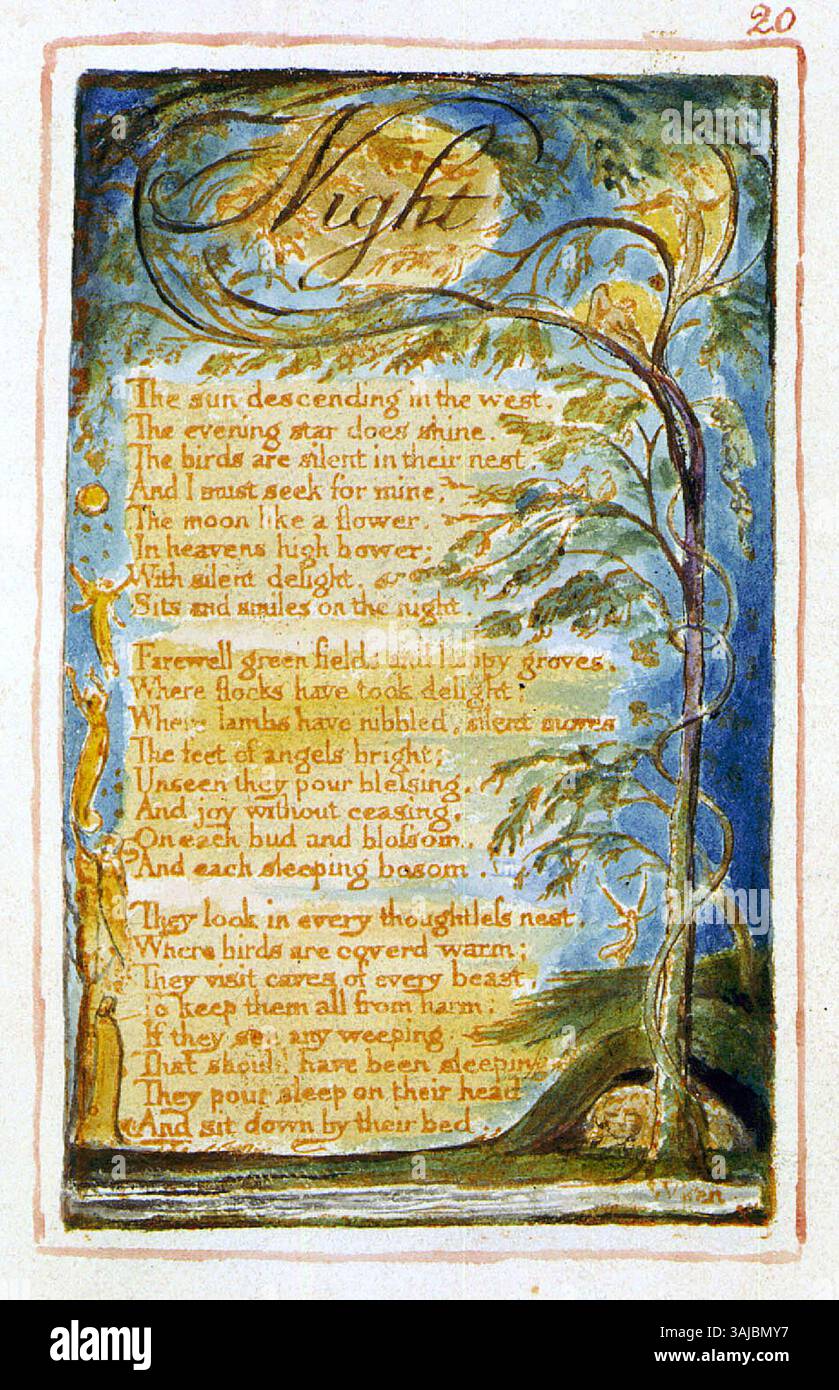 20
Night
The sun descending in the west.
The evening star does shine.
The birds are silent in their nest,
And I must seek for mine,
The moon like a flower,
In heavens high bower;
With silent delight,
Sits and smiles on the night.
Farewell green fields and happy groves,
Where flocks have took delight;
Where lambs have nibbled, silent moves
The feet of angels bright;
Unseen they pour blessing,
And joy without ceasing,
On each bud and blossom,
And each sleeping bosom.
They look in every thoughtless nest,
Where birds are coverd warm;
They visit caves of every beast,
To keep them all from harm;
If they see any weeping
That should have been sleeping
They pour sleep on their head
And sit down by their bed.
alamy
Image ID: 3AJBMY7
www.alamy.com